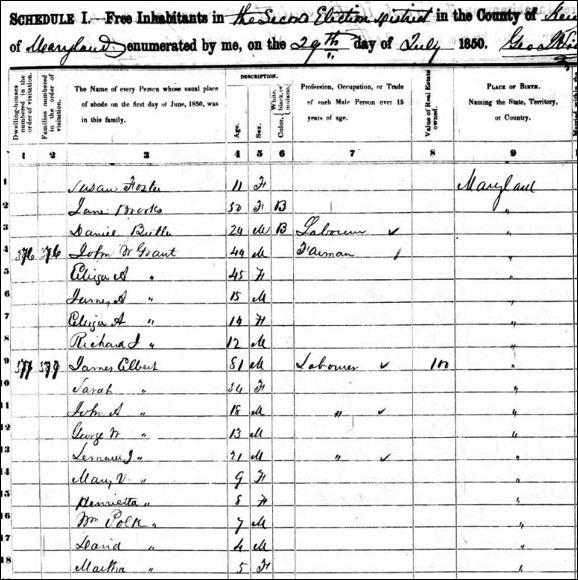 SCHEDULE I.—Free Inhabitants in the Second Election District in the County of
of Maryland enumerated by me, on the 29th day of July 1850.
Dwelling-houses numbered in the order of visitation.
Families numbered in the order of visitation.
The Name of every Person whose usual place of abode on the first day of June, 1850, was in this family.
DESCRIPTION.
Age.
Sex.
Color, White, black, or mulatto.
Profession, Occupation, or Trade of each Male Person over 15 years of age.
Value of Real Estate owned.
PLACE OF BIRTH. Naming the State, Territory, or Country.
1 2 3 4 5 6 7 8 9
1 Susan Foster 11 F Maryland
2 Jane Brooks 50 F B "
3 Daniel Butler 24 M B Labourer ✓ "
4 376 376 John W Grant 49 M Farman "
5 Eliza A " 45 F "
6 James A " 15 M "
7 Eliza A " 14 F "
8 Richard J " 12 M "
9 377 377 James Elbert 51 M Labourer ✓ 100 "
10 Sarah " 34 F "
11 John A " 18 M " ✓ "
12 George W " 13 M "
13 " 21 M " ✓ "
14 Mary V. " 9 F "
15 Henrietta " 8 F "
16 Wm Polk " 7 M "
17 David " 4 M "
18 Martha " 5 F "